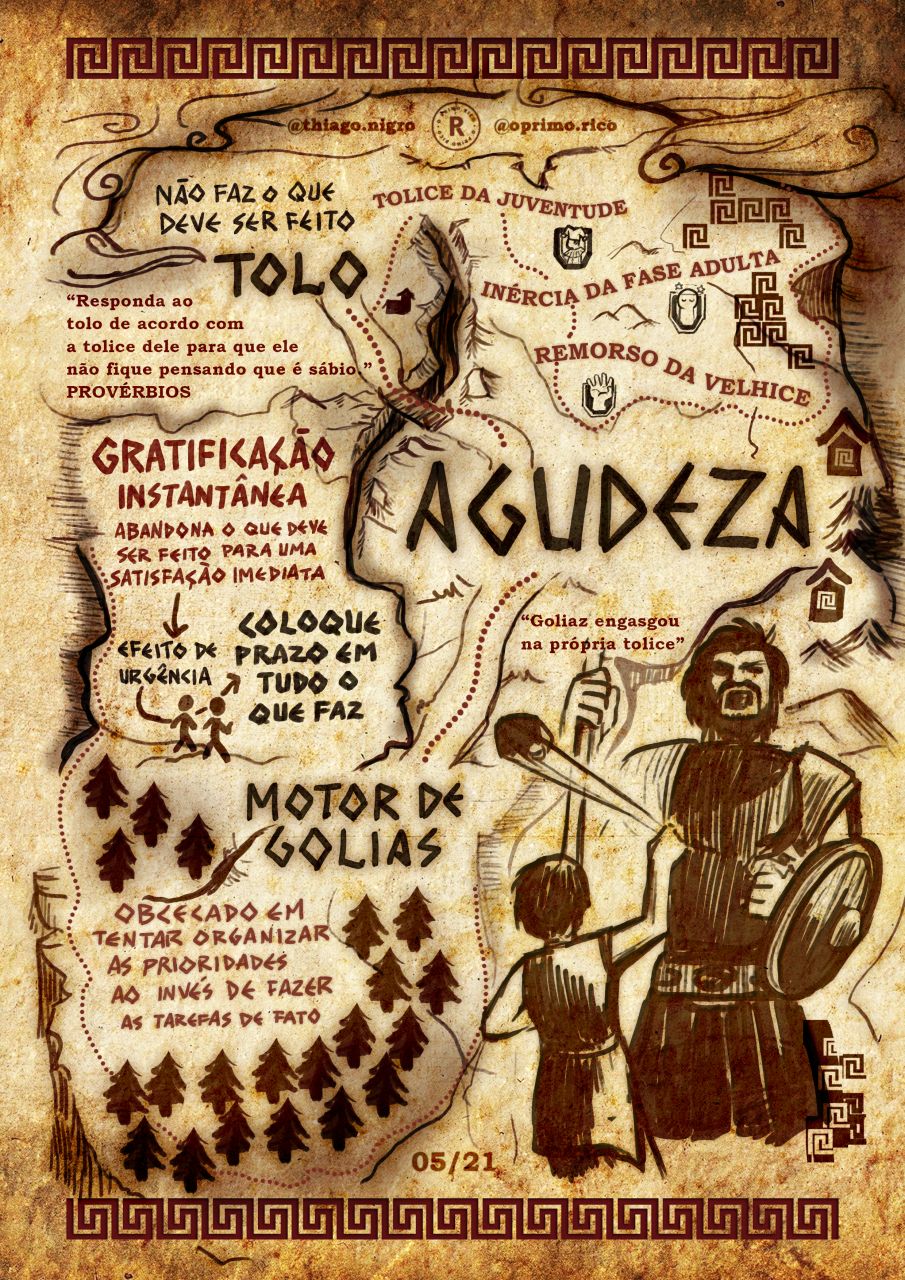 @thiago.nigro
R
@oprimo.rico
NÃO FAZ O QUE
DEVE SER FEITO
TOLO
"Responda ao
tolo de acordo com
a tolice dele para que ele
não fique pensando que é sábio."
PROVÉRBIOS
TOLICE DA JUVENTUDE
INÉRCIA DA FASE ADULTA
REMORSO DA VELHICE
GRATIFICAÇÃO
INSTANTÂNEA
ABANDONA O QUE DEVE
SER FEITO PARA UMA
SATISFAÇÃO IMEDIATA
EFEITO DE
URGÊNCIA
COLOQUE
PRAZO EM
TUDO O
QUE FAZ
AGUDEZA
"Goliaz engasgou
na própria tolice"
MOTOR DE
GOLIAS
OBCECADO EM
TENTAR ORGANIZAR
AS PRIORIDADES
AO INVÉS DE FAZER
AS TAREFAS DE FATO
05/21